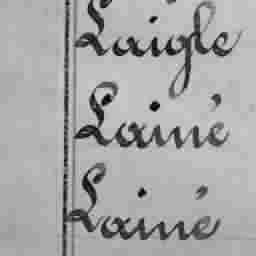 Laigle
Lainé
Lainé